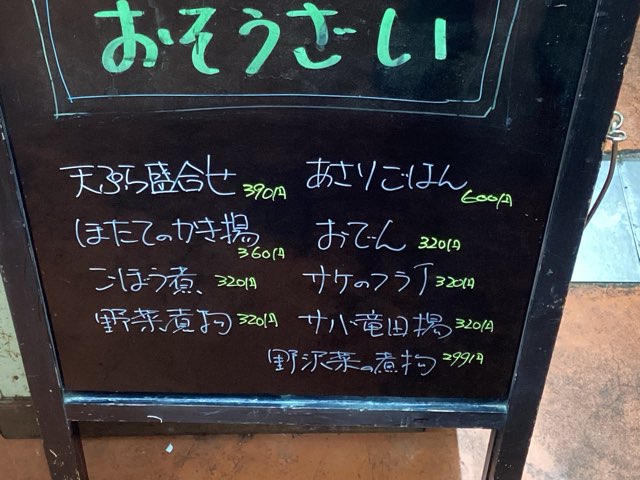 おそうざい
天ぷら盛合せ 390円
ほたてのかき揚 360円
ごぼう煮 320円
野菜煮物 320円
あさりごはん 600円
おでん 320円
サケのフライ 320円
サバ竜田揚 320円
野沢菜の煮物 299円